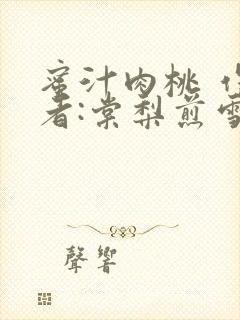 蜜汁肉桃 
者:棠梨煎雪
聲響